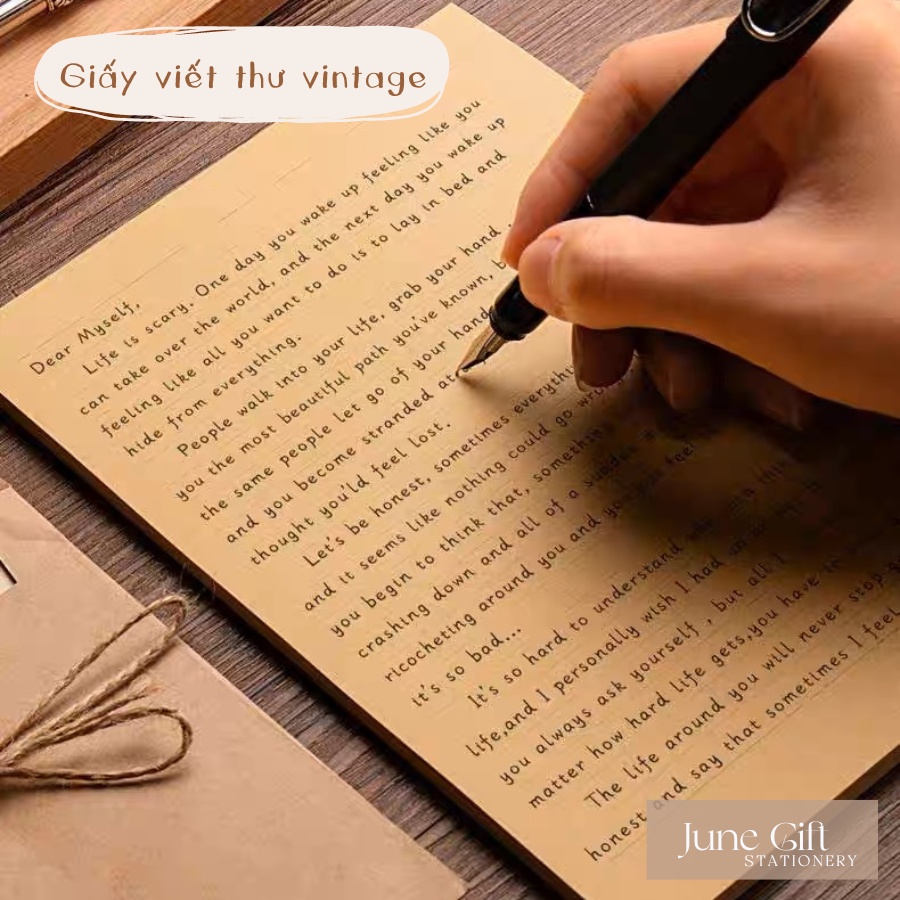 Giấy viết thư vintage
Dear Myself,
Life is scary. One day you wake up feeling like you
can take over the world, and the next day you wake up
feeling like all you want to do is to lay in bed and
hide from everything.
People walk into your life, grab your hand
you the most beautiful path you've known,
the same people let go of your hand
and you become stranded at
thought you'ld feel lost.
Let's be honest, sometimes everythi
and it seems like nothing could go
you begin to think that, somethin
crashing down and all of a sudden
ricocheting around you and you
it's so bad...
It's so hard to understand
life,and I personally wish I had
you always ask yourself , but all I
matter how hard life gets,you have
The life around you will never stop
honest and say that sometimes I feel
June Gift
STATIONERY